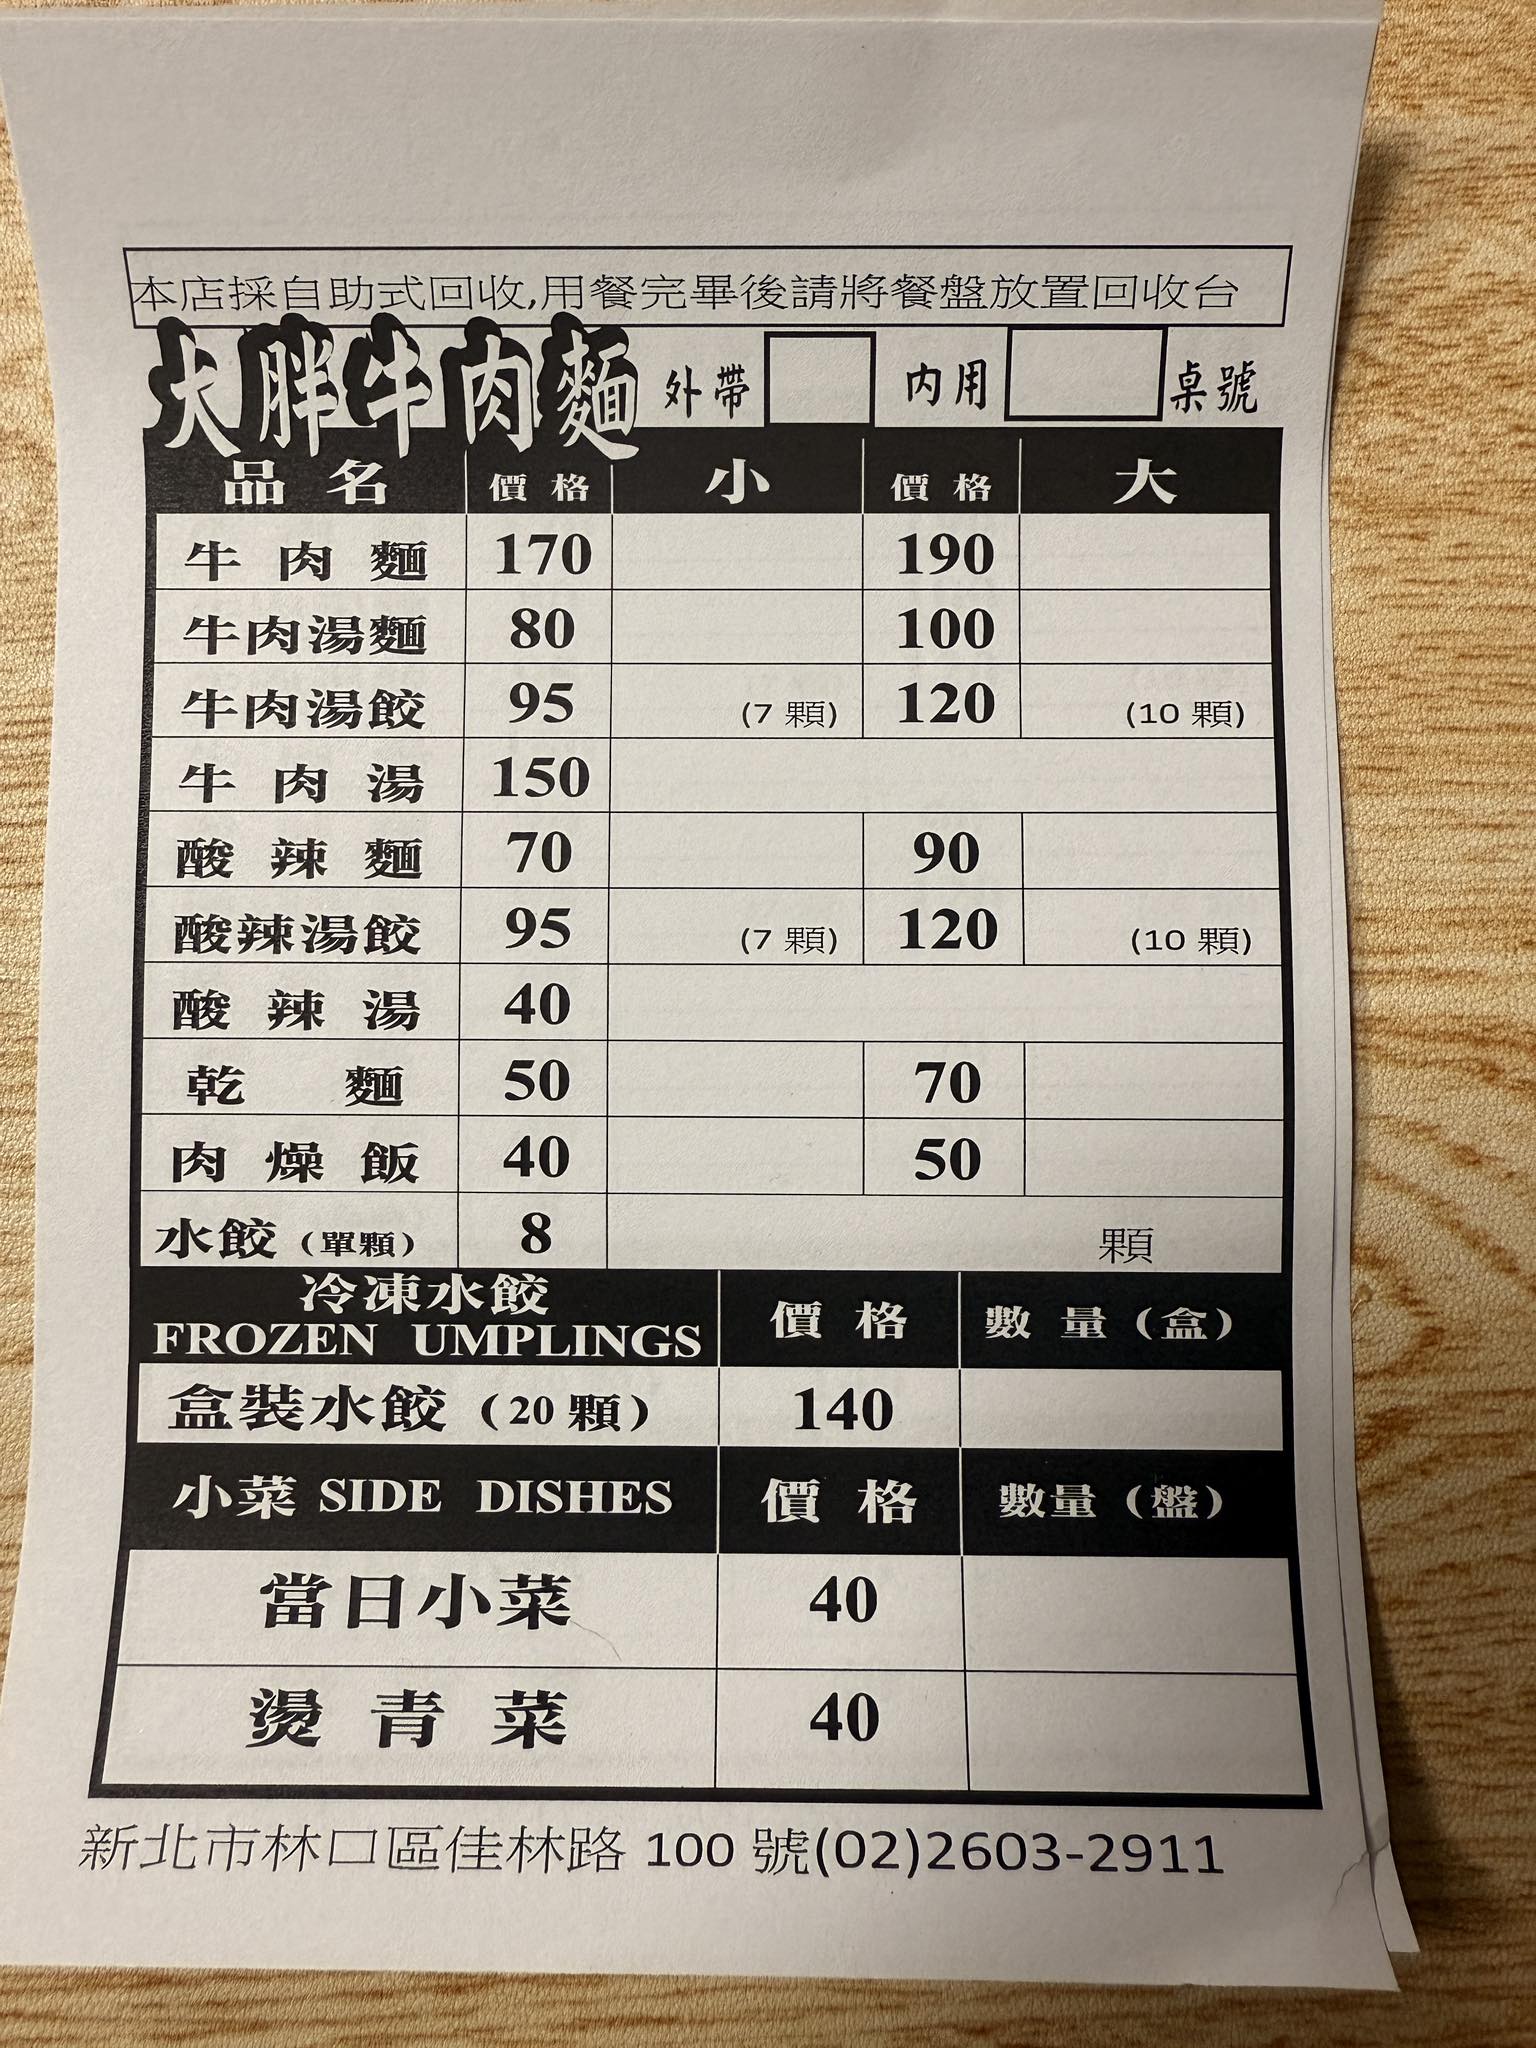 本店採自助式回收,用餐完畢後請將餐盤放置回收台
大胖牛肉麵 外帶 內用 桌號
品名 價格 小 價格 大
牛肉麵 170 190
牛肉湯麵 80 100
牛肉湯餃 95 (7 顆) 120 (10 顆)
牛肉湯 150
酸辣麵 70 90
酸辣湯餃 95 (7 顆) 120 (10 顆)
酸辣湯 40
乾麵 50 70
肉燥飯 40 50
水餃（單顆） 8 顆
冷凍水餃
FROZEN UMPLINGS 價格 數量（盒）
盒裝水餃（20 顆） 140
小菜 SIDE DISHES 價格 數量（盤）
當日小菜 40
燙青菜 40
新北市林口區佳林路 100 號(02)2603-2911